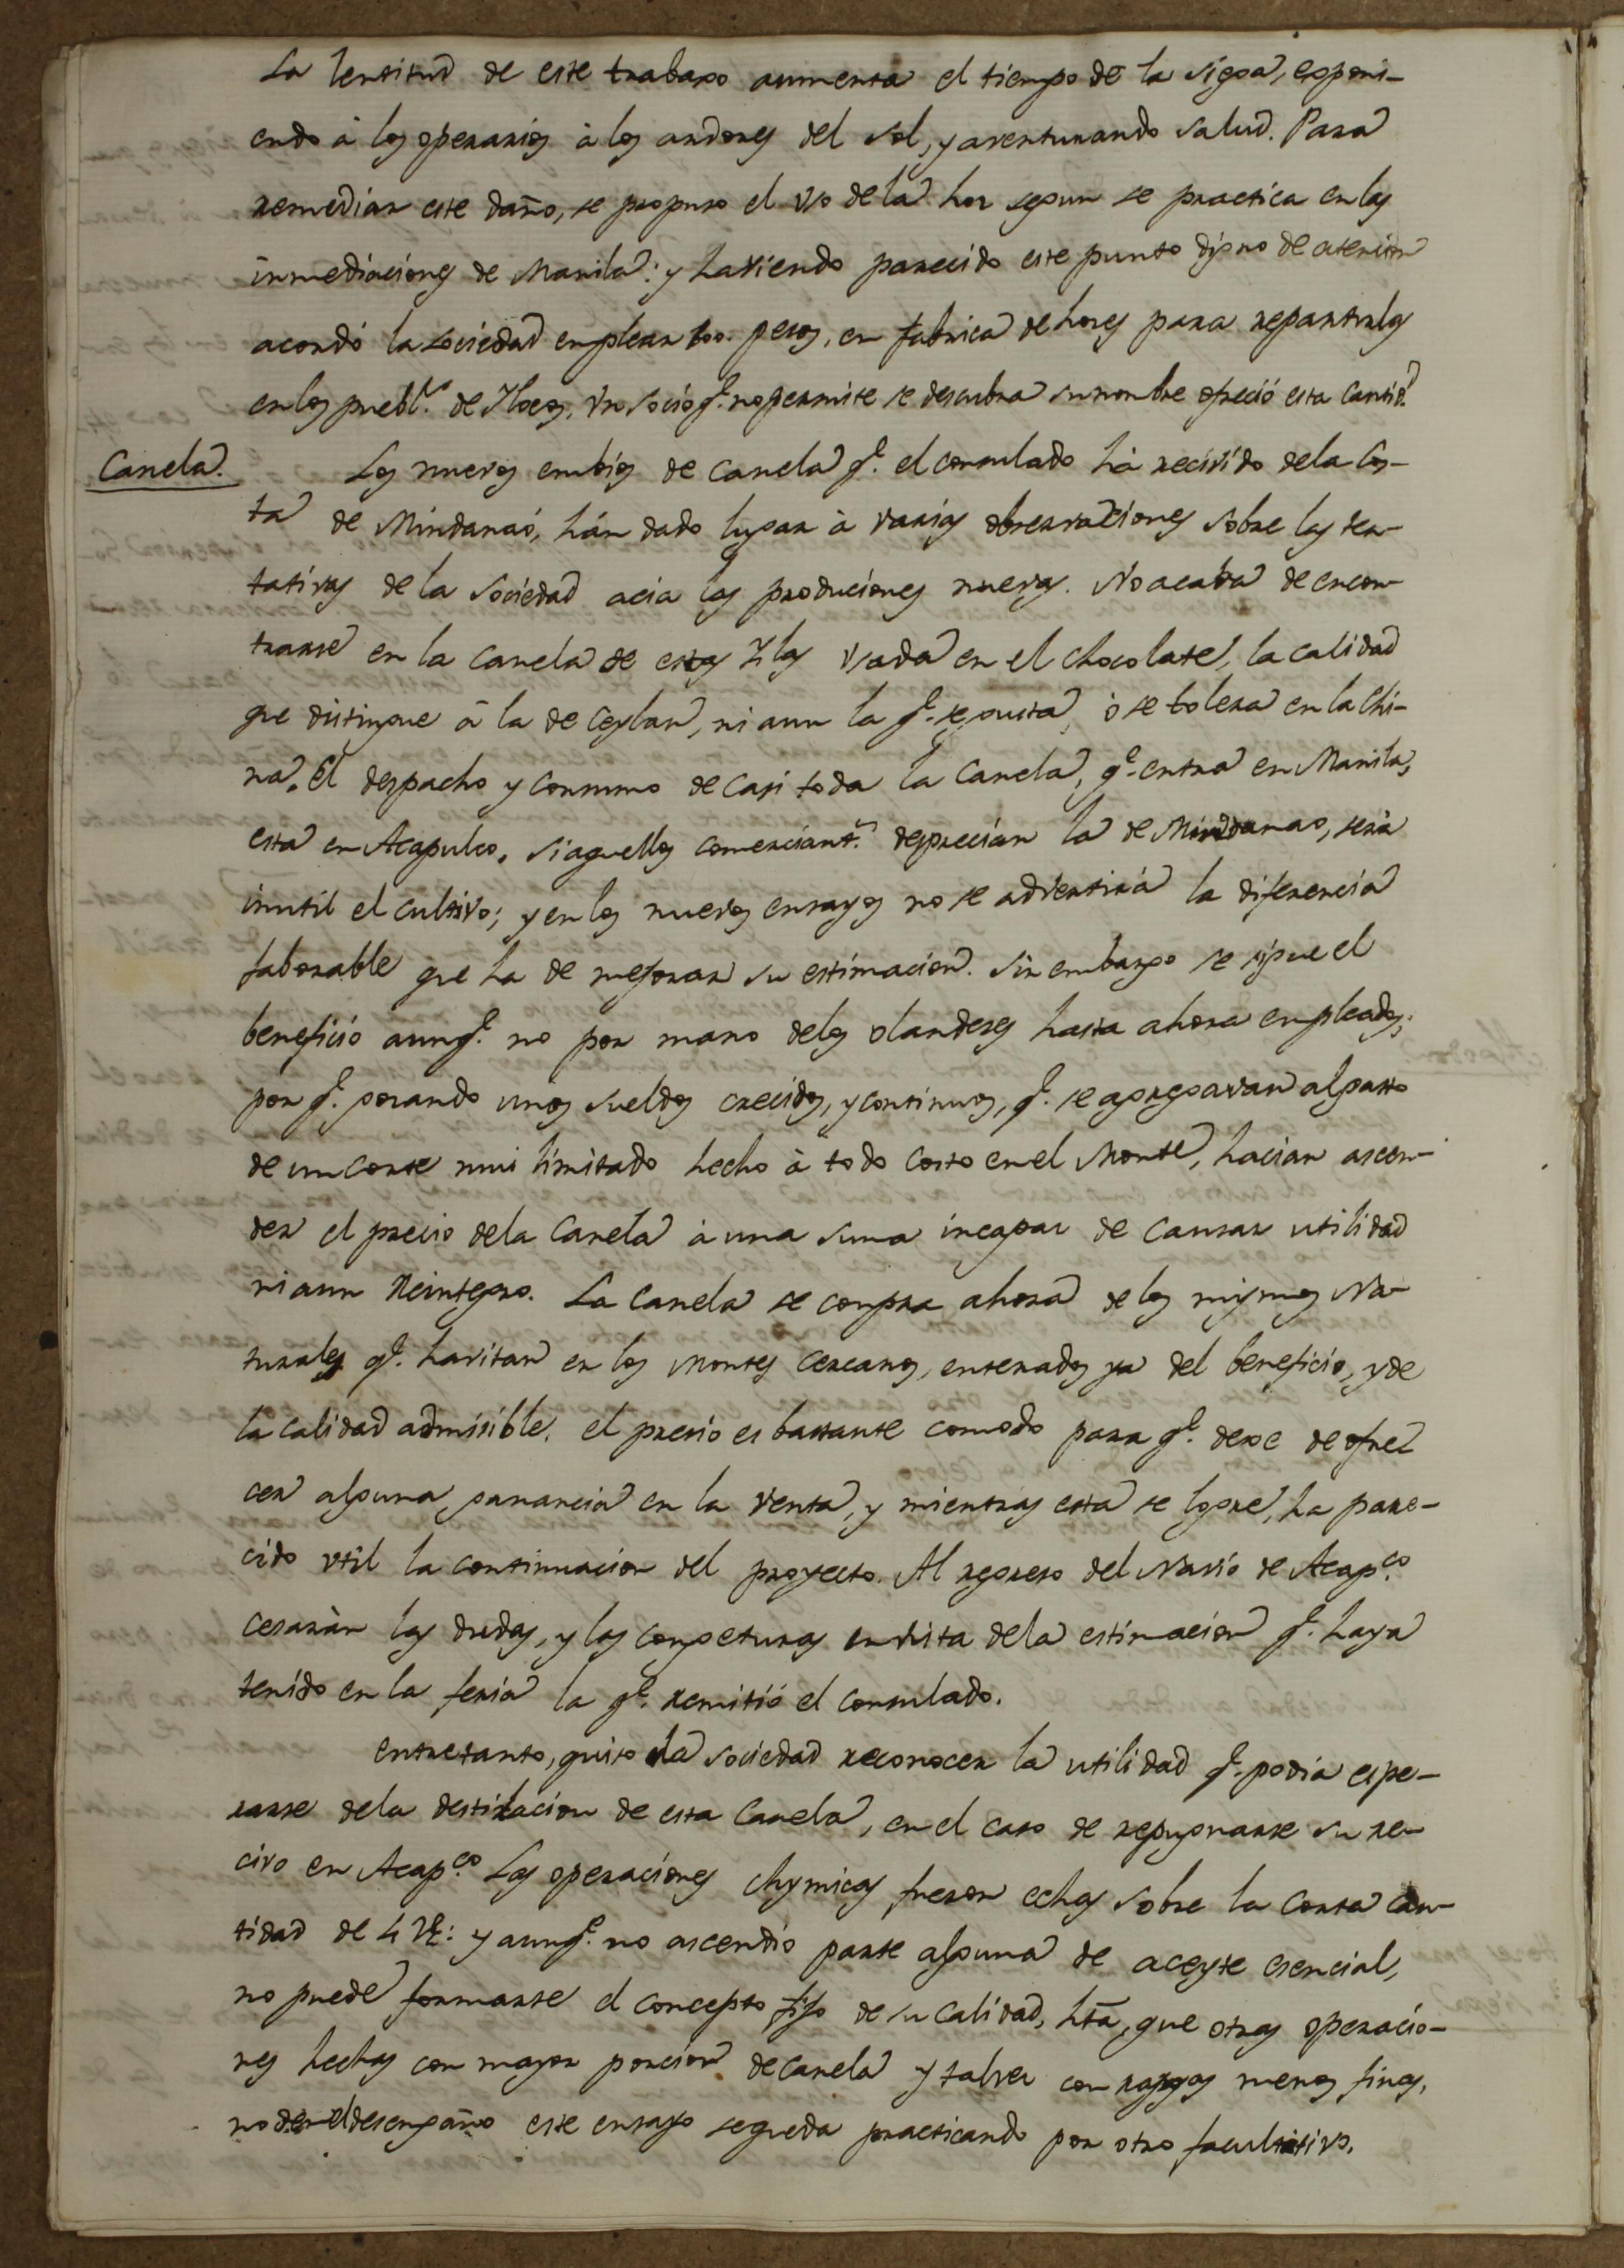 La lentitud de este trabaxo aumenta el tiempo de la siega, exponi-
endo à los operarios à los ardores del sol, y aventurando salud. Para
remediar este daño, se propuso el vso de la hoz segun se practica en las
inmediaciones de Manila: y haviendo parecido este punto digno de atencion
acordó la sociedad emplear 100. pesos, en fabrica de hozes para repartirlas
en los puebl.s de Ylocos. Vn socio q.e no permite se descubra su nombre ofreció esta cantid.d
Canela.
Los nuevos embios de canela q.e el consulado há recivido dela Cos-
ta de Mindanaó, hán dado lugar à varias observaciones sobre las ten-
tativas de la Sociedad acia las produciones nuevas. No acaba de encon-
trarse en la canela de estas Yslas vsada en el chocolate, la calidad
que distingue à la de Ceylan, ni aun la q.e se gusta, ó se tolera en la Chi-
na. El despacho y consumo de casi toda la Canela, q.e entra en Manila,
esta en Acapulco. Si aquellos comerciant.s desprecian la de Mindanao, será
inutil el cultivo; y en los nuevos ensayos no se advertirá la diferencia
faborable que ha de mejorar su estimacion. Sin embargo se sigue el
beneficio aunq.e no por mano delos olandeses hasta ahora empleados;
por q.e gozando unos sueldos crecidos, y continuos, q.e se agregavan al gasto
de un corte mui limitado hecho à todo costo en el Monte, hacian ascen-
der el precio dela Canela à una suma incapaz de causar utilidad
ni aun Reintegro. La Canela se compra ahora de los mismos Na-
turales q.e havitan en los Montes cercanos, enterados ya del beneficio, y de
la calidad admisible. el precio es bastante comodo para q.e dexe de ofre
cer alguna ganancia en la venta, y mientras esta se logre, ha pare-
cido vtil la continuacion del proyecto. Al regreso del Navio de Acap.co
cesaràn las dudas, y las congeturas en vista dela estimacion q.e haya
tenido en la feria la q.e remitió el consulado.
Entretanto, quiso la sociedad reconocer la utilidad q.e podia espe-
rarse dela destilacion de esta Canela, en el caso de repugnarse su re-
civo en Acap.co Las operaciones chymicas fueron echas sobre la corta can-
tidad de 4 lb: y aunq.e no ascendió parte alguna de aceyte esencial,
no puede formarse el concepto fijo de su calidad, hta, que otras operacio-
nes hechas con mayor porcion de canela y talvez con rasgos menos finos,
no den el desengaño este ensayo se queda practicando por otro facultativo.